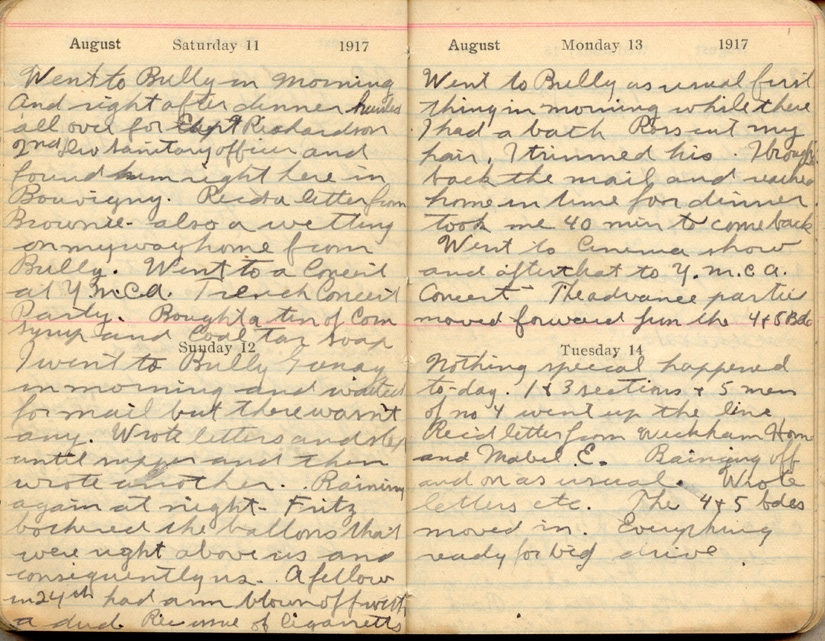 August Saturday 11 1917
Went to Bully in morning
and right after dinner hunted
all over for Capt Richardson
2nd Div Sanitary officer and
found him right here in
Bouvigny. Rec'd a letter from
Brownie - also a wetting
on my way home from
Bully. Went to a Concert
at Y.M.C.A. Trench Concert
Party. Bought a tin of Corn
syrup and Coal tar soap
Sunday 12
I went to Bully Grenay
in morning and waited
for mail but there wasn't
any. Wrote letters and slept
until supper and then
wrote another. Raining
again at night - Fritz
bothered the ballons that
were right above us and
consequently us. A fellow
in 24th had arm blown off with
a dud. Rec issue of Cigaretts
August Monday 13 1917
Went to Bully as usual first
thing in morning while there
I had a bath Ross cut my
hair, I trimmed his. I brought
back the mail and reached
home in time for dinner.
took me 40 min to come back
Went to Cinema show
and after that to Y.M.C.A.
Concert - The advance parties
moved forward from the 4 & 5 Bde
Tuesday 14
Nothing special happened
to-day. 1 & 3 sections & 5 men
of no 4 went up the line
Rec'd letter from Wickham Home
and Mabel E. Raining off
and on as usual. Wrote
letters etc. The 4 & 5 bdes
moved in. Everything
ready for big drive